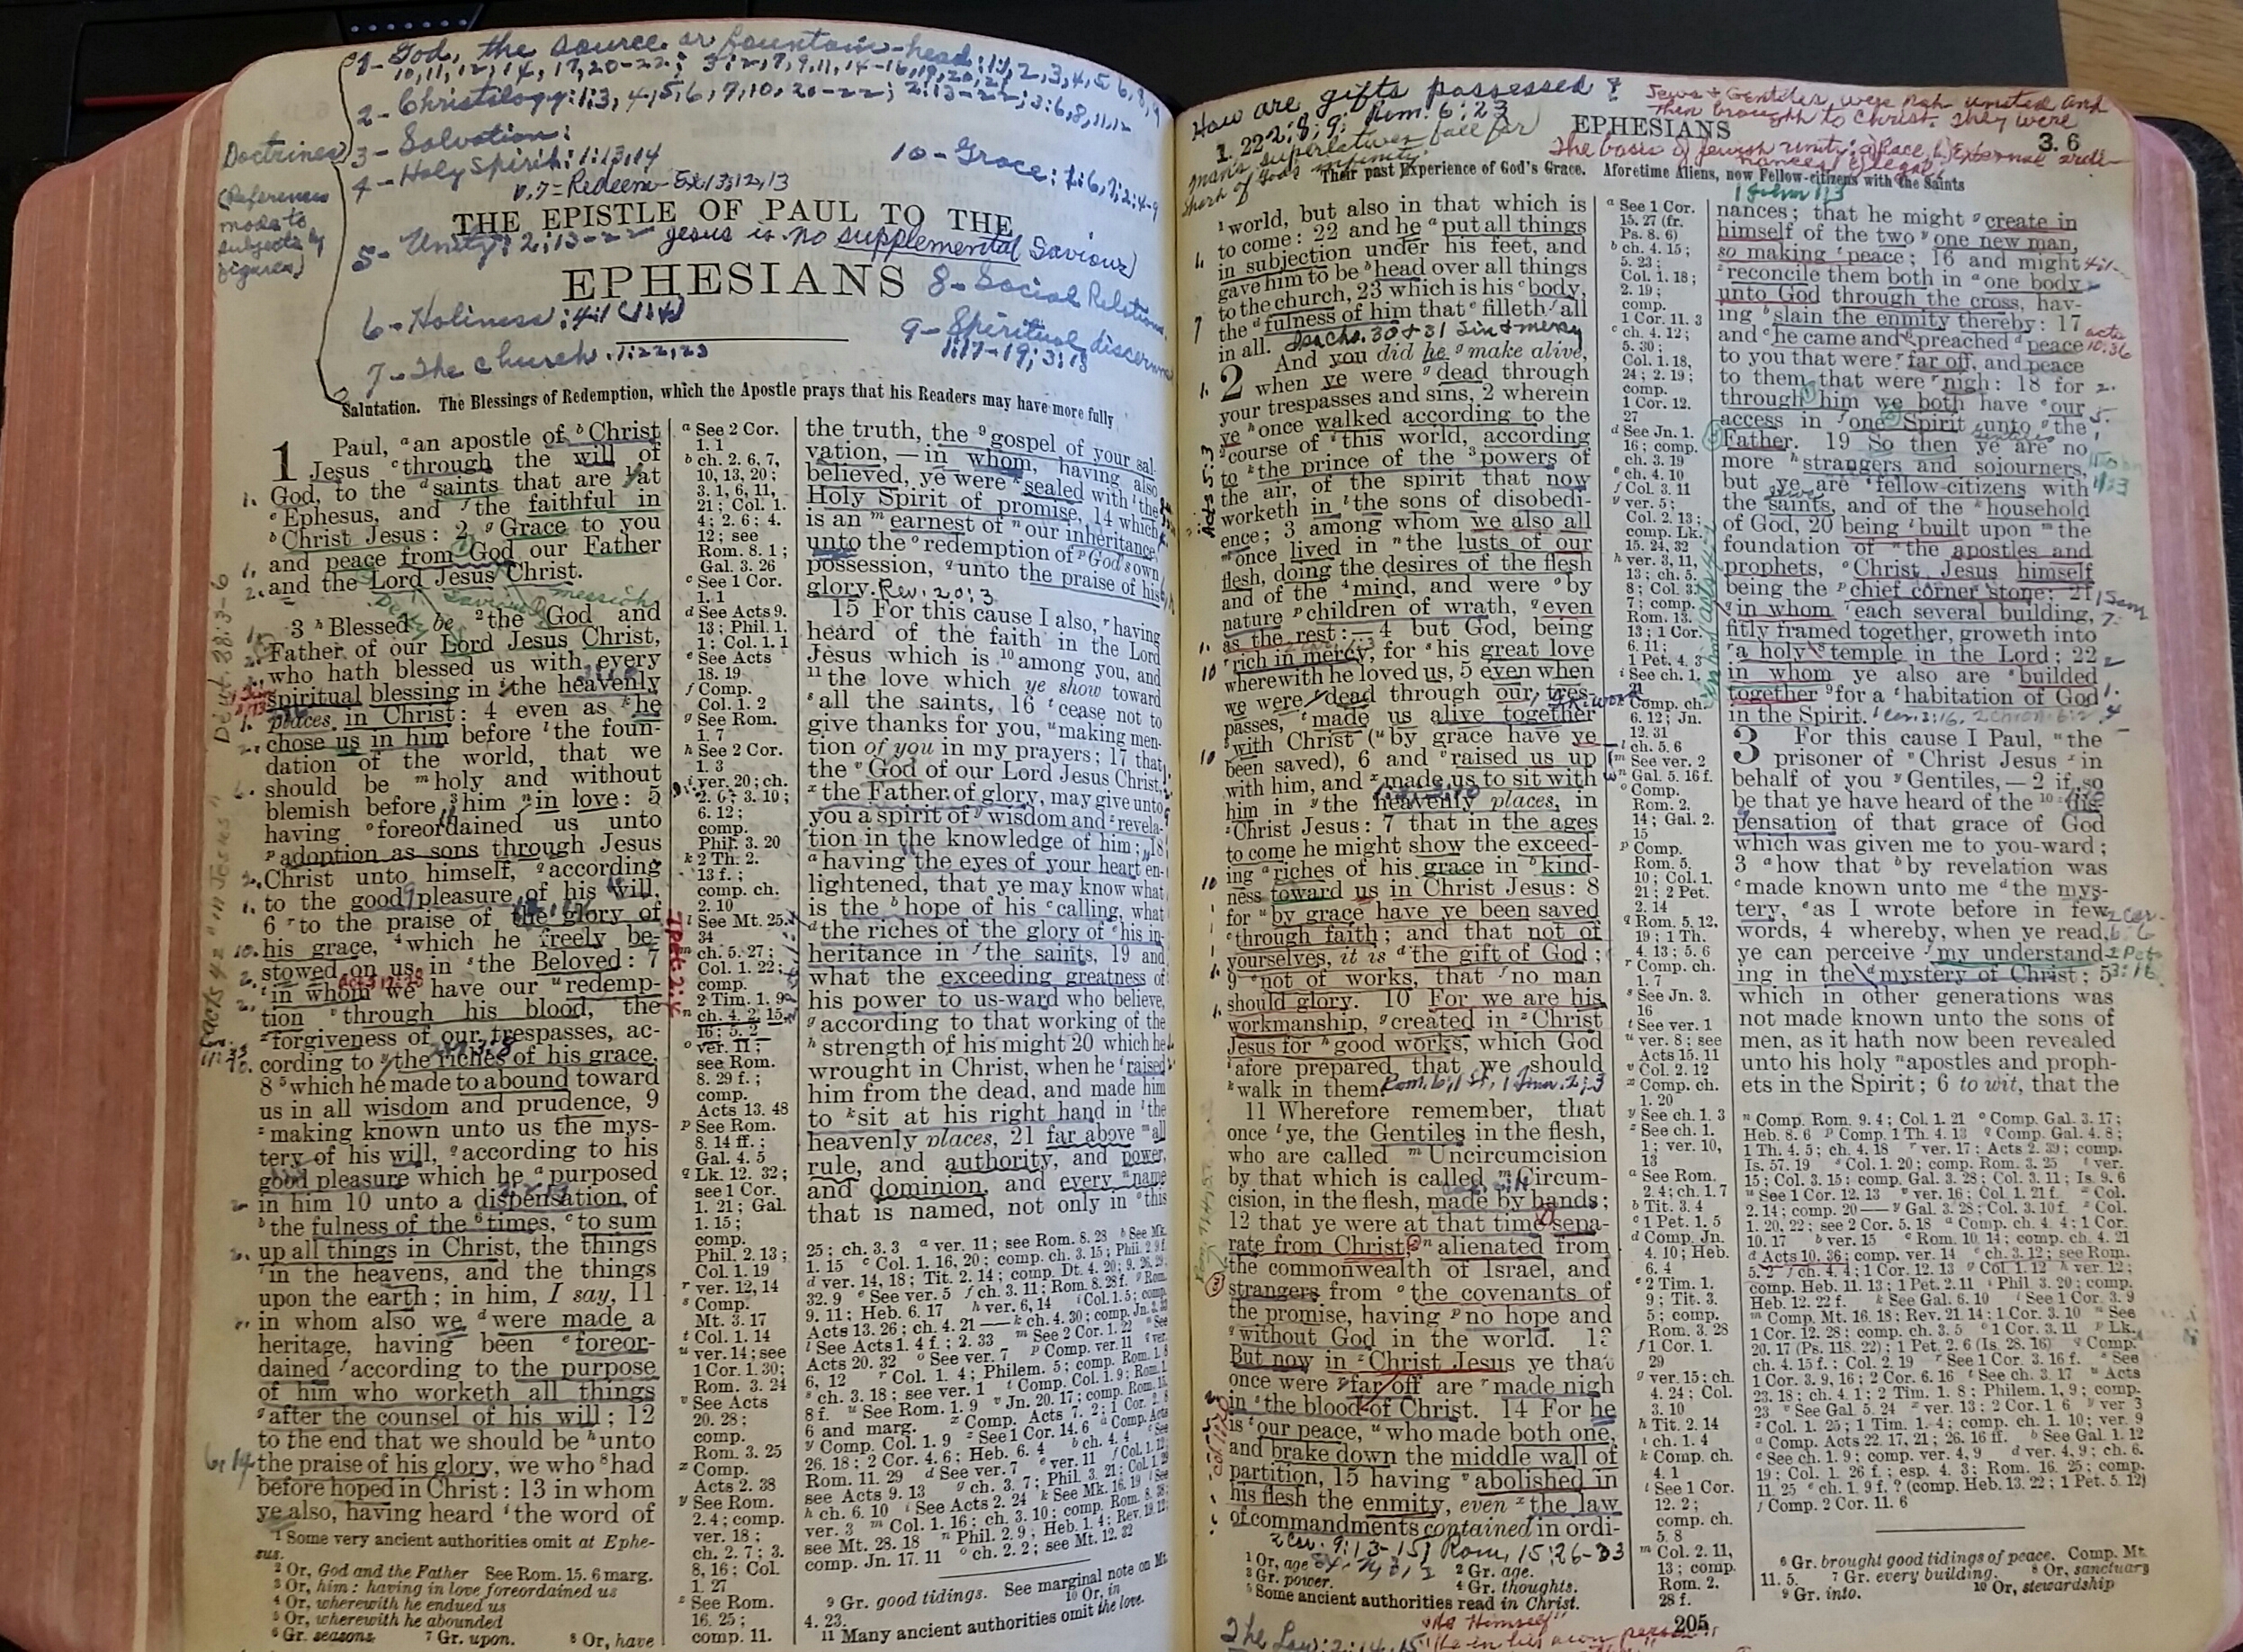 1- God, the source or fountain-head: 1:1, 2, 3, 4, 5, 6, 8, 9
10, 11, 12, 14, 17, 20-22; 3:2, 7, 9, 11, 14-16, 19, 20, 21
2- Christology: 1:3, 4, 5, 6, 7, 10, 20-22; 2:13-22; 3:6, 8, 11, 12
Doctrines
3- Salvation:
4- Holy Spirit: 1:13, 14
10- Grace: 1:6, 7; 2:4-9
(References
made to
subjects by
figures)
v. 7 = Redeem- Ex. 13:12, 13
THE EPISTLE OF PAUL TO THE
5- Unity: 2:13-22
Jesus is no supplemental Saviour
EPHESIANS
8- Social Relations
6- Holiness: 4:1 (1:4)
9- Spiritual discernm
1:17-19; 3:18
7- The Church. 1:22, 23
Salutation. The Blessings of Redemption, which the Apostle prays that his Readers may have more fully
1 Paul, a an apostle of b Christ
Jesus c through the will of
God, to the d saints that are 1 at
e Ephesus, and f the faithful in
b Christ Jesus: 2 g Grace to you
and peace from God our Father
and the Lord Jesus Christ.
Deity Saviour Messiah
3 h Blessed be 2 the God and
Father of our Lord Jesus Christ,
who hath blessed us with every
spiritual blessing in i the heavenly
places in Christ: 4 even as k he
chose us in him before l the foun-
dation of the world, that we
should be m holy and without
blemish before 3 him n in love: 5
having o foreordained us unto
p adoption as sons through Jesus
Christ unto himself, q according
to the good pleasure of his will,
6 r to the praise of the glory of
his grace, 4 which he freely be-
stowed on us in s the Beloved: 7
t in whom we have our u redemp-
tion v through his blood, the
x forgiveness of our trespasses, ac-
cording to y the riches of his grace,
8 5 which he made to abound toward
us in all wisdom and prudence, 9
z making known unto us the mys-
tery of his will, q according to his
good pleasure which he a purposed
in him 10 unto a dispensation of
b the fulness of the 6 times, c to sum
up all things in Christ, the things
7 in the heavens, and the things
upon the earth; in him, I say, 11
in whom also we d were made a
heritage, having been e foreor-
dained f according to the purpose
of him who worketh all things
g after the counsel of his will; 12
to the end that we should be h unto
the praise of his glory, we who 8 had
before hoped in Christ: 13 in whom
ye also, having heard i the word of
1 Some very ancient authorities omit at Ephe-
sus.
2 Or, God and the Father See Rom. 15. 6 marg.
3 Or, him: having in love foreordained us
4 Or, wherewith he endued us
5 Or, wherewith he abounded
6 Gr. seasons. 7 Gr. upon. 8 Or, have
Deut. 33:3-6
Acts 4:2 "in Jesus"
a See 2 Cor.
1. 1
b ch. 2. 6, 7,
10, 13, 20;
3. 1, 6, 11,
21; Col. 1.
4; 2. 6; 4.
12; see
Rom. 8. 1;
Gal. 3. 26
c See 1 Cor.
1. 1
d See Acts 9.
13; Phil. 1.
1; Col. 1. 1
e See Acts
18. 19
f Comp.
Col. 1. 2
g See Rom.
1. 7
h See 2 Cor.
1. 3
i ver. 20; ch.
2. 6; 3. 10;
6. 12;
comp.
Phil. 3. 20
k 2 Th. 2.
13 f.;
comp. ch.
2. 10
l See Mt. 25.
34
m ch. 5. 27;
Col. 1. 22;
comp.
2 Tim. 1. 9
n ch. 4. 2, 15,
16; 5. 2
o ver. 11;
see Rom.
8. 29 f.;
comp.
Acts 13. 48
p See Rom.
8. 14 ff.;
Gal. 4. 5
q Lk. 12. 32;
see 1 Cor.
1. 21; Gal.
1. 15;
comp.
Phil. 2. 13;
Col. 1. 19
r ver. 12, 14
s Comp.
Mt. 3. 17
t Col. 1. 14
u ver. 14; see
1 Cor. 1. 30;
Rom. 3. 24
v See Acts
20. 28;
comp.
Rom. 3. 25
x Comp.
Acts 2. 38
y See Rom.
2. 4; comp.
ver. 18;
ch. 2. 7; 3.
8, 16; Col.
1. 27
z See Rom.
16. 25;
comp. 11.
the truth, the 9 gospel of your sal-
vation,—in whom, having also
believed, ye were k sealed with l the
Holy Spirit of promise, 14 which
is an m earnest of n our inheritance,
unto the o redemption of p God's own
possession, q unto the praise of his
glory. Rev. 20:3
15 For this cause I also, r having
heard of the faith in the Lord
Jesus which is 10 among you, and
11 the love which ye show toward
s all the saints, 16 t cease not to
give thanks for you, u making men-
tion of you in my prayers; 17 that
the v God of our Lord Jesus Christ,
x the Father of glory, may give unto
you a spirit of y wisdom and z revela-
tion in the knowledge of him; 18
a having the eyes of your heart en-
lightened, that ye may know what
is the b hope of his c calling, what
d the riches of the glory of e his in-
heritance in f the saints, 19 and
what the exceeding greatness of
his power to us-ward who believe,
g according to that working of the
h strength of his might 20 which he
wrought in Christ, when he i raised
him from the dead, and made him
to k sit at his right hand in l the
heavenly places, 21 far above m all
rule, and authority, and power,
and dominion, and every n name
that is named, not only in o this
25; ch. 3. 3 a ver. 11; see Rom. 8. 28 b See Mk.
1. 15 c Col. 1. 16, 20; comp. ch. 3. 15; Phil. 2. 9 f.
d ver. 14, 18; Tit. 2. 14; comp. Dt. 4. 20; 9. 26, 29;
32. 9 e See ver. 5 f ch. 3. 11; Rom. 8. 28 f. g Rom.
9. 11; Heb. 6. 17 h ver. 6, 14 i Col. 1. 5; comp.
Acts 13. 26; ch. 4. 21 — k ch. 4. 30; comp. Jn. 3. 33
l See Acts 1. 4 f.; 2. 33 m See 2 Cor. 1. 22 n See
Acts 20. 32 o See ver. 7 p Comp. ver. 11 q ver.
6, 12 r Col. 1. 4; Philem. 5; comp. Rom. 1. 8
s ch. 3. 18; see ver. 1 t Comp. Col. 1. 9; Rom. 1.
8 f. u See Rom. 1. 9 v Jn. 20. 17; comp. Rom. 15.
6 and marg. x Comp. Acts 7. 2; 1 Cor. 2. 8
y Comp. Col. 1. 9 z See 1 Cor. 14. 6 a Comp. Acts
26. 18; 2 Cor. 4. 6; Heb. 6. 4 b ch. 4. 4 c See
Rom. 11. 29 d See ver. 7 e ver. 11 f Col. 1. 12;
see Acts 9. 13 g ch. 3. 7; Phil. 3. 21; Col. 1. 29
h ch. 6. 10 i See Acts 2. 24 k See Mk. 16. 19 l See
ver. 3 m Col. 1. 16; ch. 3. 10; comp. Rom. 8. 38;
see Mt. 28. 18 n Phil. 2. 9; Heb. 1. 4; Rev. 19. 12;
comp. Jn. 17. 11 o ch. 2. 2; see Mt. 12. 32
9 Gr. good tidings. See marginal note on Mt.
4. 23. 10 Or, in
11 Many ancient authorities omit the love.
How are gifts possessed?
Rom. 6:23
Jews & Gentiles were not united and
then brought to Christ. They were
1. 22 2:8, 9;
EPHESIANS
3. 6
man's superlatives fall far
short of God's infinity.
The basis of Jewish Unity: a) Race, b) External ordi-
nances, c) Legal
Their past Experience of God's Grace. Aforetime Aliens, now Fellow-citizens with the Saints
1 world, but also in that which is
to come: 22 and he a put all things
in subjection under his feet, and
gave him to be b head over all things
to the church, 23 which is his c body,
the d fulness of him that e filleth f all
in all. Psachs. 30 & 31 Sin & mercy
2 And you did he g make alive,
when ye were g dead through
your trespasses and sins, 2 wherein
ye h once walked according to the
2 course of i this world, according
to k the prince of the 3 powers of
the air, of the spirit that now
worketh in l the sons of disobedi-
ence; 3 among whom we also all
m once lived in n the lusts of our
flesh, doing the desires of the flesh
and of the 4 mind, and were o by
nature p children of wrath, q even
as the rest:—4 but God, being
r rich in mercy, for s his great love
wherewith he loved us, 5 even when
we were t dead through our tres-
passes, t made us alive together
5 with Christ (u by grace have ye
been saved), 6 and v raised us up
with him, and x made us to sit with
him in y the heavenly places, in
z Christ Jesus: 7 that in the ages
to come he might show the exceed-
ing a riches of his grace in b kind-
ness toward us in Christ Jesus: 8
for u by grace have ye been saved
c through faith; and that not of
yourselves, it is d the gift of God;
9 e not of works, that f no man
should glory. 10 For we are his
workmanship, g created in z Christ
Jesus for h good works, which God
i afore prepared that we should
k walk in them.
11 Wherefore remember, that
once l ye, the Gentiles in the flesh,
who are called m Uncircumcision
by that which is called m Circum-
cision, in the flesh, made by hands;
12 that ye were at that time sepa-
rate from Christ, n alienated from
the commonwealth of Israel, and
strangers from o the covenants of
the promise, having p no hope and
q without God in the world. 13
But now in z Christ Jesus ye that
once were r far off are r made nigh
in s the blood of Christ. 14 For he
is t our peace, u who made both one,
and brake down the middle wall of
partition, 15 having v abolished in
his flesh the enmity, even x the law
of commandments contained in ordi-
2 Cor. 9:13-15; Rom. 15:26-33
1 Or, age 2 Gr. age.
3 Gr. power. 4 Gr. thoughts.
5 Some ancient authorities read in Christ.
a See 1 Cor.
15. 27 (fr.
Ps. 8. 6)
b ch. 4. 15;
5. 23;
Col. 1. 18;
2. 19;
comp.
1 Cor. 11. 3
c ch. 4. 12;
5. 30;
Col. 1. 18,
24; 2. 19;
comp.
1 Cor. 12.
27
d See Jn. 1.
16; comp.
ch. 3. 19
e ch. 4. 10
f Col. 3. 11
g ver. 5;
Col. 2. 13;
comp. Lk.
15. 24, 32
h ver. 3, 11,
13; ch. 5.
8; Col. 3.
7; comp.
Rom. 13.
13; 1 Cor.
6. 11;
1 Pet. 4. 3
i See ch. 1.
21
k Comp. ch.
6. 12; Jn.
12. 31
l ch. 5. 6
m See ver. 2
n Gal. 5. 16 f.
o Comp.
Rom. 2.
14; Gal. 2.
15
p Comp.
Rom. 5.
10; Col. 1.
21; 2 Pet.
2. 14
q Rom. 5. 12,
19; 1 Th.
4. 13; 5. 6
r Comp. ch.
1. 7
s See Jn. 3.
16
t See ver. 1
u ver. 8; see
Acts 15. 11
v Col. 2. 12
x Comp. ch.
1. 20
y See ch. 1. 3
z See ch. 1.
1; ver. 10,
13
a See Rom.
2. 4; ch. 1. 7
b Tit. 3. 4
c 1 Pet. 1. 5
d Comp. Jn.
4. 10; Heb.
6. 4
e 2 Tim. 1.
9; Tit. 3.
5; comp.
Rom. 3. 28
f 1 Cor. 1.
29
g ver. 15; ch.
4. 24; Col.
3. 10
h Tit. 2. 14
i ch. 1. 4
k Comp. ch.
4. 1
l See 1 Cor.
12. 2;
comp. ch.
5. 8
m Col. 2. 11,
13; comp.
Rom. 2.
28 f.
nances; that he might g create in
himself of the two y one new man,
so making t peace; 16 and might
z reconcile them both in a one body
unto God through the cross, hav-
ing b slain the enmity thereby: 17
and c he came and 6 preached d peace
to you that were r far off, and peace
to them that were r nigh: 18 for
through him we both have e our
access in f one Spirit unto g the
Father. 19 So then ye are no
more h strangers and sojourners,
but ye are i fellow-citizens with
the saints, and of the k household
of God, 20 being l built upon m the
foundation of n the apostles and
prophets, o Christ Jesus himself
being the p chief corner stone; 21
q in whom 7 each several building,
fitly framed together, groweth into
r a holy 8 temple in the Lord; 22
in whom ye also are s builded
together 9 for a t habitation of God
in the Spirit.
3 For this cause I Paul, u the
prisoner of v Christ Jesus x in
behalf of you y Gentiles,—2 if so
be that ye have heard of the 10 z dis-
pensation of that grace of God
which was given me to you-ward;
3 a how that b by revelation was
c made known unto me d the mys-
tery, e as I wrote before in few
words, 4 whereby, when ye read,
ye can perceive f my understand-
ing in the d mystery of Christ; 5
which in other generations was
not made known unto the sons of
men, as it hath now been revealed
unto his holy n apostles and proph-
ets in the Spirit; 6 to wit, that the
acts
10:36
n Comp. Rom. 9. 4; Col. 1. 21 o Comp. Gal. 3. 17;
Heb. 8. 6 p Comp. 1 Th. 4. 13 q Comp. Gal. 4. 8;
1 Th. 4. 5; ch. 4. 18 r ver. 17; Acts 2. 39; comp.
Is. 57. 19 s Col. 1. 20; comp. Rom. 3. 25 t ver.
15; Col. 3. 15; comp. Gal. 3. 28; Col. 3. 11; Is. 9. 6
u See 1 Cor. 12. 13 v ver. 16; Col. 1. 21 f. x Col.
2. 14; comp. 20 — y Gal. 3. 28; Col. 3. 10 f. z Col.
1. 20, 22; see 2 Cor. 5. 18 a Comp. ch. 4. 4; 1 Cor.
10. 17 b ver. 15 c Rom. 10. 14; comp. ch. 4. 21
d Acts 10. 36; comp. ver. 14 e ch. 3. 12; see Rom.
5. 2 f ch. 4. 4; 1 Cor. 12. 13 g Col. 1. 12 h ver. 12;
comp. Heb. 11. 13; 1 Pet. 2. 11 i Phil. 3. 20; comp.
Heb. 12. 22 f. k See Gal. 6. 10 l See 1 Cor. 3. 9
m Comp. Mt. 16. 18; Rev. 21. 14; 1 Cor. 3. 10 n See
1 Cor. 12. 28; comp. ch. 3. 5 o 1 Cor. 3. 11 p Lk.
20. 17 (Ps. 118. 22); 1 Pet. 2. 6 (Is. 28. 16) q Comp.
ch. 4. 15 f.; Col. 2. 19 r See 1 Cor. 3. 16 f. s See
1 Cor. 3. 9, 16; 2 Cor. 6. 16 t See ch. 3. 17 u Acts
23. 18; ch. 4. 1; 2 Tim. 1. 8; Philem. 1, 9; comp.
23 v See Gal. 5. 24 x ver. 13; 2 Cor. 1. 6 y ver 3
z Col. 1. 25; 1 Tim. 1. 4; comp. ch. 1. 10; ver. 9
a Comp. Acts 22. 17, 21; 26. 16 ff. b See Gal. 1. 12
c See ch. 1. 9; comp. ver. 4, 9 d ver. 4, 9; ch. 6.
19; Col. 1. 26 f.; esp. 4. 3; Rom. 16. 25; comp.
11. 25 e ch. 1. 9 f.? (comp. Heb. 13. 22; 1 Pet. 5. 12)
f Comp. 2 Cor. 11. 6
6 Gr. brought good tidings of peace. Comp. Mt.
11. 5. 7 Gr. every building. 8 Or, sanctuary
9 Gr. into. 10 Or, stewardship
205
The Law: 2:14, 15
"He Himself"
"he in his own person"